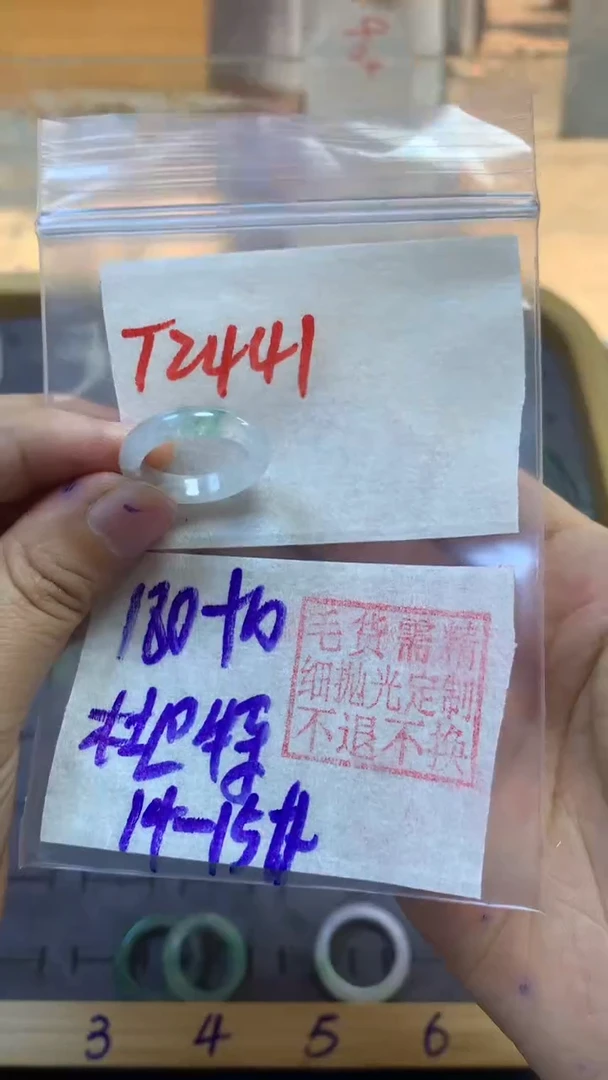 T2441
180+10
毛货需精
细抛光定制
不退不换
14-15#
3 4 5 6